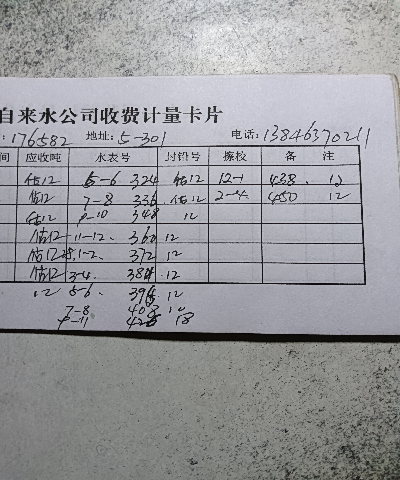 自来水公司收费计量卡片
: 176582 地址: 5-301 电话: 13846370211
间 应收吨 水表号 封铅号 换校 备 注
估12 5-6 324 估12 12-1 438. 12
估12 7-8 336 估12 2-4. 450 12
估12 9-10 348 12
估12 11-12. 360 12
估12 1-2. 372 12
估12 3-4. 384 12
12 5-6. 396 12
7-8 408
9-11 18